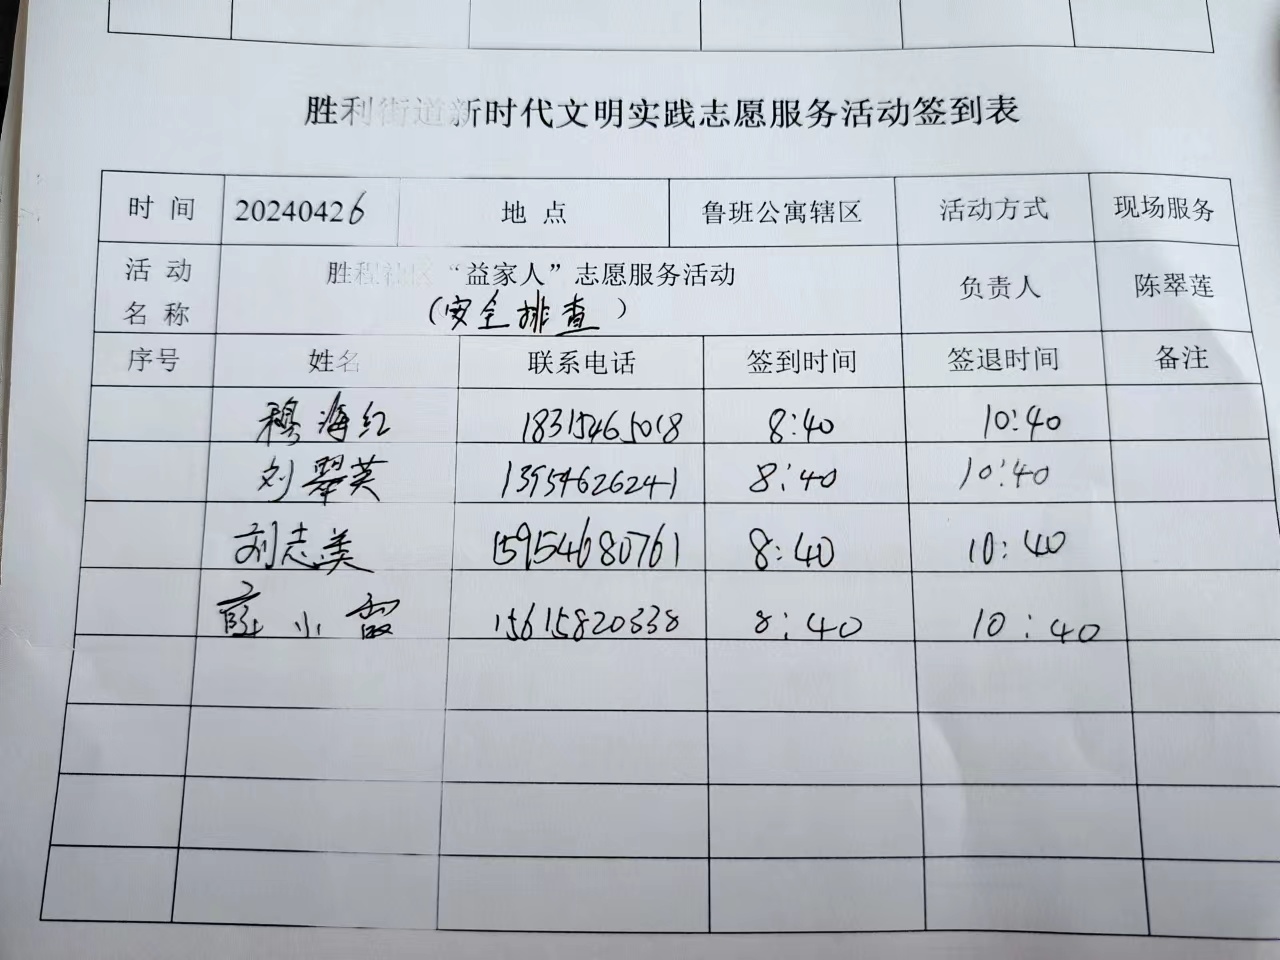 胜利街道新时代文明实践志愿服务活动签到表
时 间 20240426 地 点 鲁班公寓辖区 活动方式 现场服务
活 动 名 称 胜程社区“益家人”志愿服务活动 负责人 陈翠莲
（安全排查）
序号 姓名 联系电话 签到时间 签退时间 备注
穆海红 18315465018 8:40 10:40
刘翠英 13954626241 8:40 10:40
刘志美 15954680761 8:40 10:40
薛小霞 15615820338 8:40 10:40